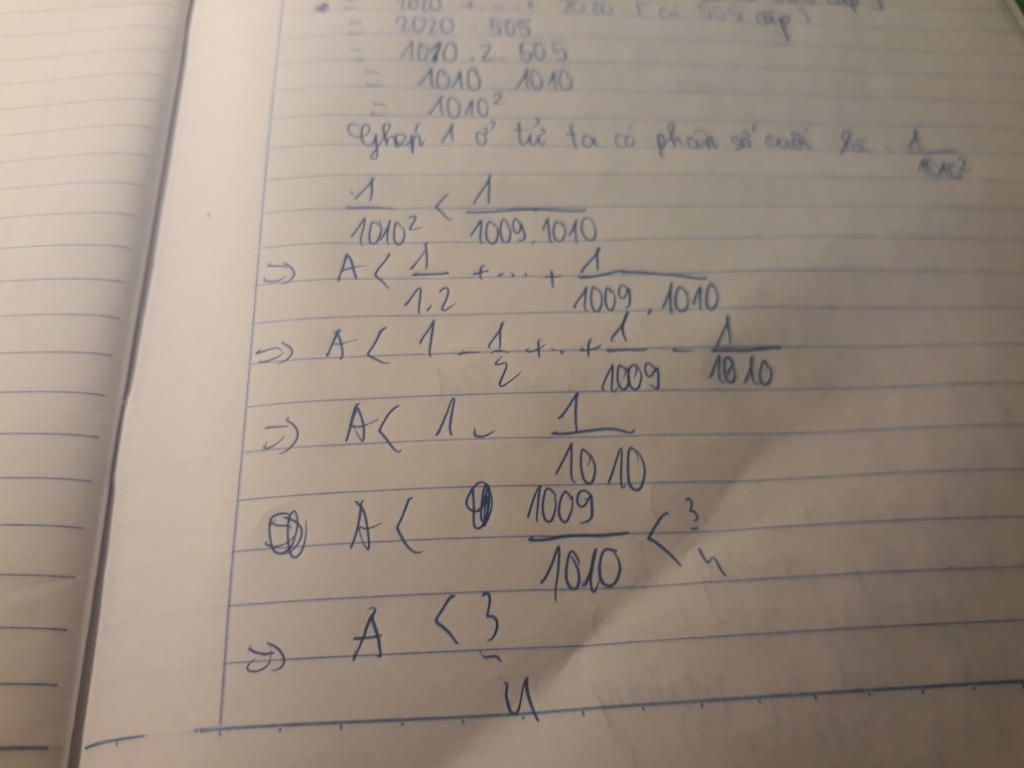 = 2020 +....+ 2020 (có 505 cặp)
= 2020 . 505
= 1010 . 2 . 505
= 1010 1010
= 1010²
1 ở tử ta có phân số cuối là 1/1010²
1/1010² < 1/1009.1010
=> A < 1/1.2 +...+ 1/1009.1010
=> A < 1 - 1/2 +..+ 1/1009 - 1/1010
=> A < 1 - 1/1010
A < 1009/1010 < 3/4
=> A < 3/4